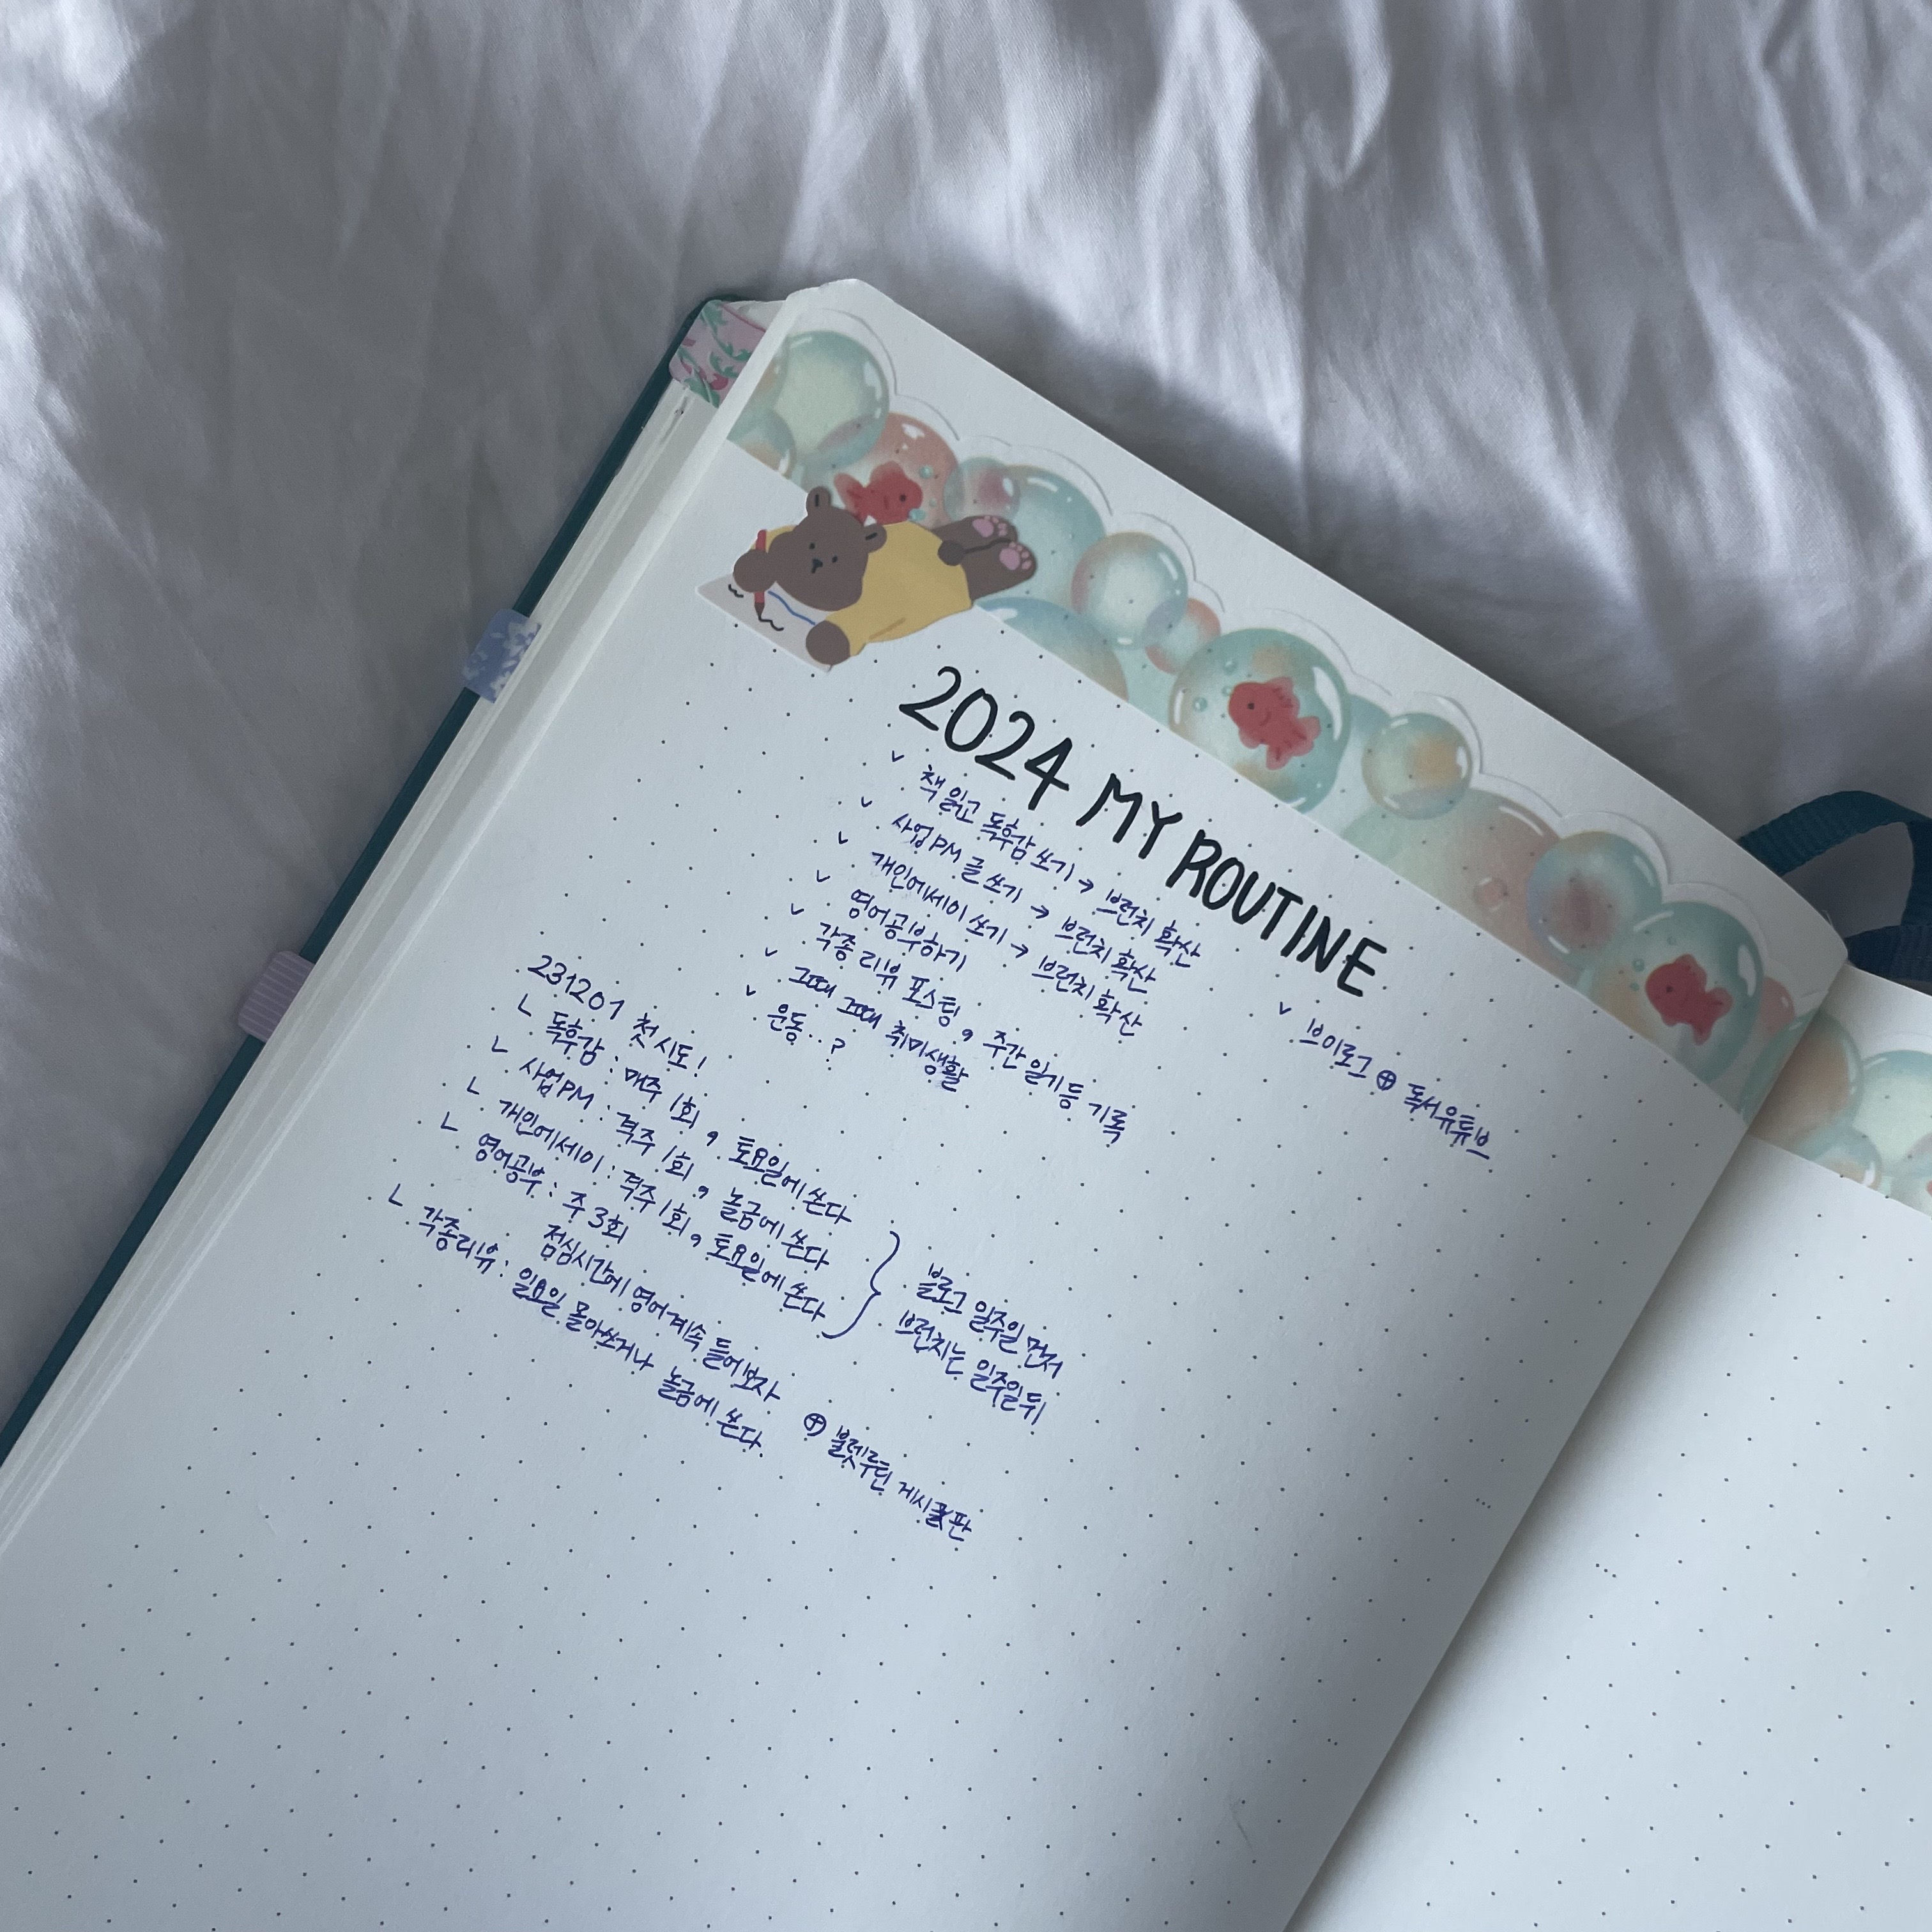 2024 MY ROUTINE
✓ 책 읽고 독후감 쓰기 → 브런치 확산
✓ 사업PM 글 쓰기 → 브런치 확산
✓ 개인에세이 쓰기 → 브런치 확산
✓ 영어공부하기
✓ 각종 리뷰 포스팅, 주간 일기 등 기록
✓ 그때 그때 취미생활
✓ 운동..?
✓ 브이로그 ⊕ 독서유튜브
231201 첫 시도!
ㄴ 독후감 : 매주 1회, 토요일에 쓴다
ㄴ 사업PM : 격주 1회, 놀금에 쓴다
ㄴ 개인에세이 : 격주 1회, 토요일에 쓴다
ㄴ 영어공부 : 주 3회
점심시간에 영어 계속 들어보자
ㄴ 각종리뷰 : 일요일 몰아쓰거나 놀금에 쓴다.
블로그 일주일 먼저
브런치는 일주일 뒤
⊕ 불렛루틴 게시판